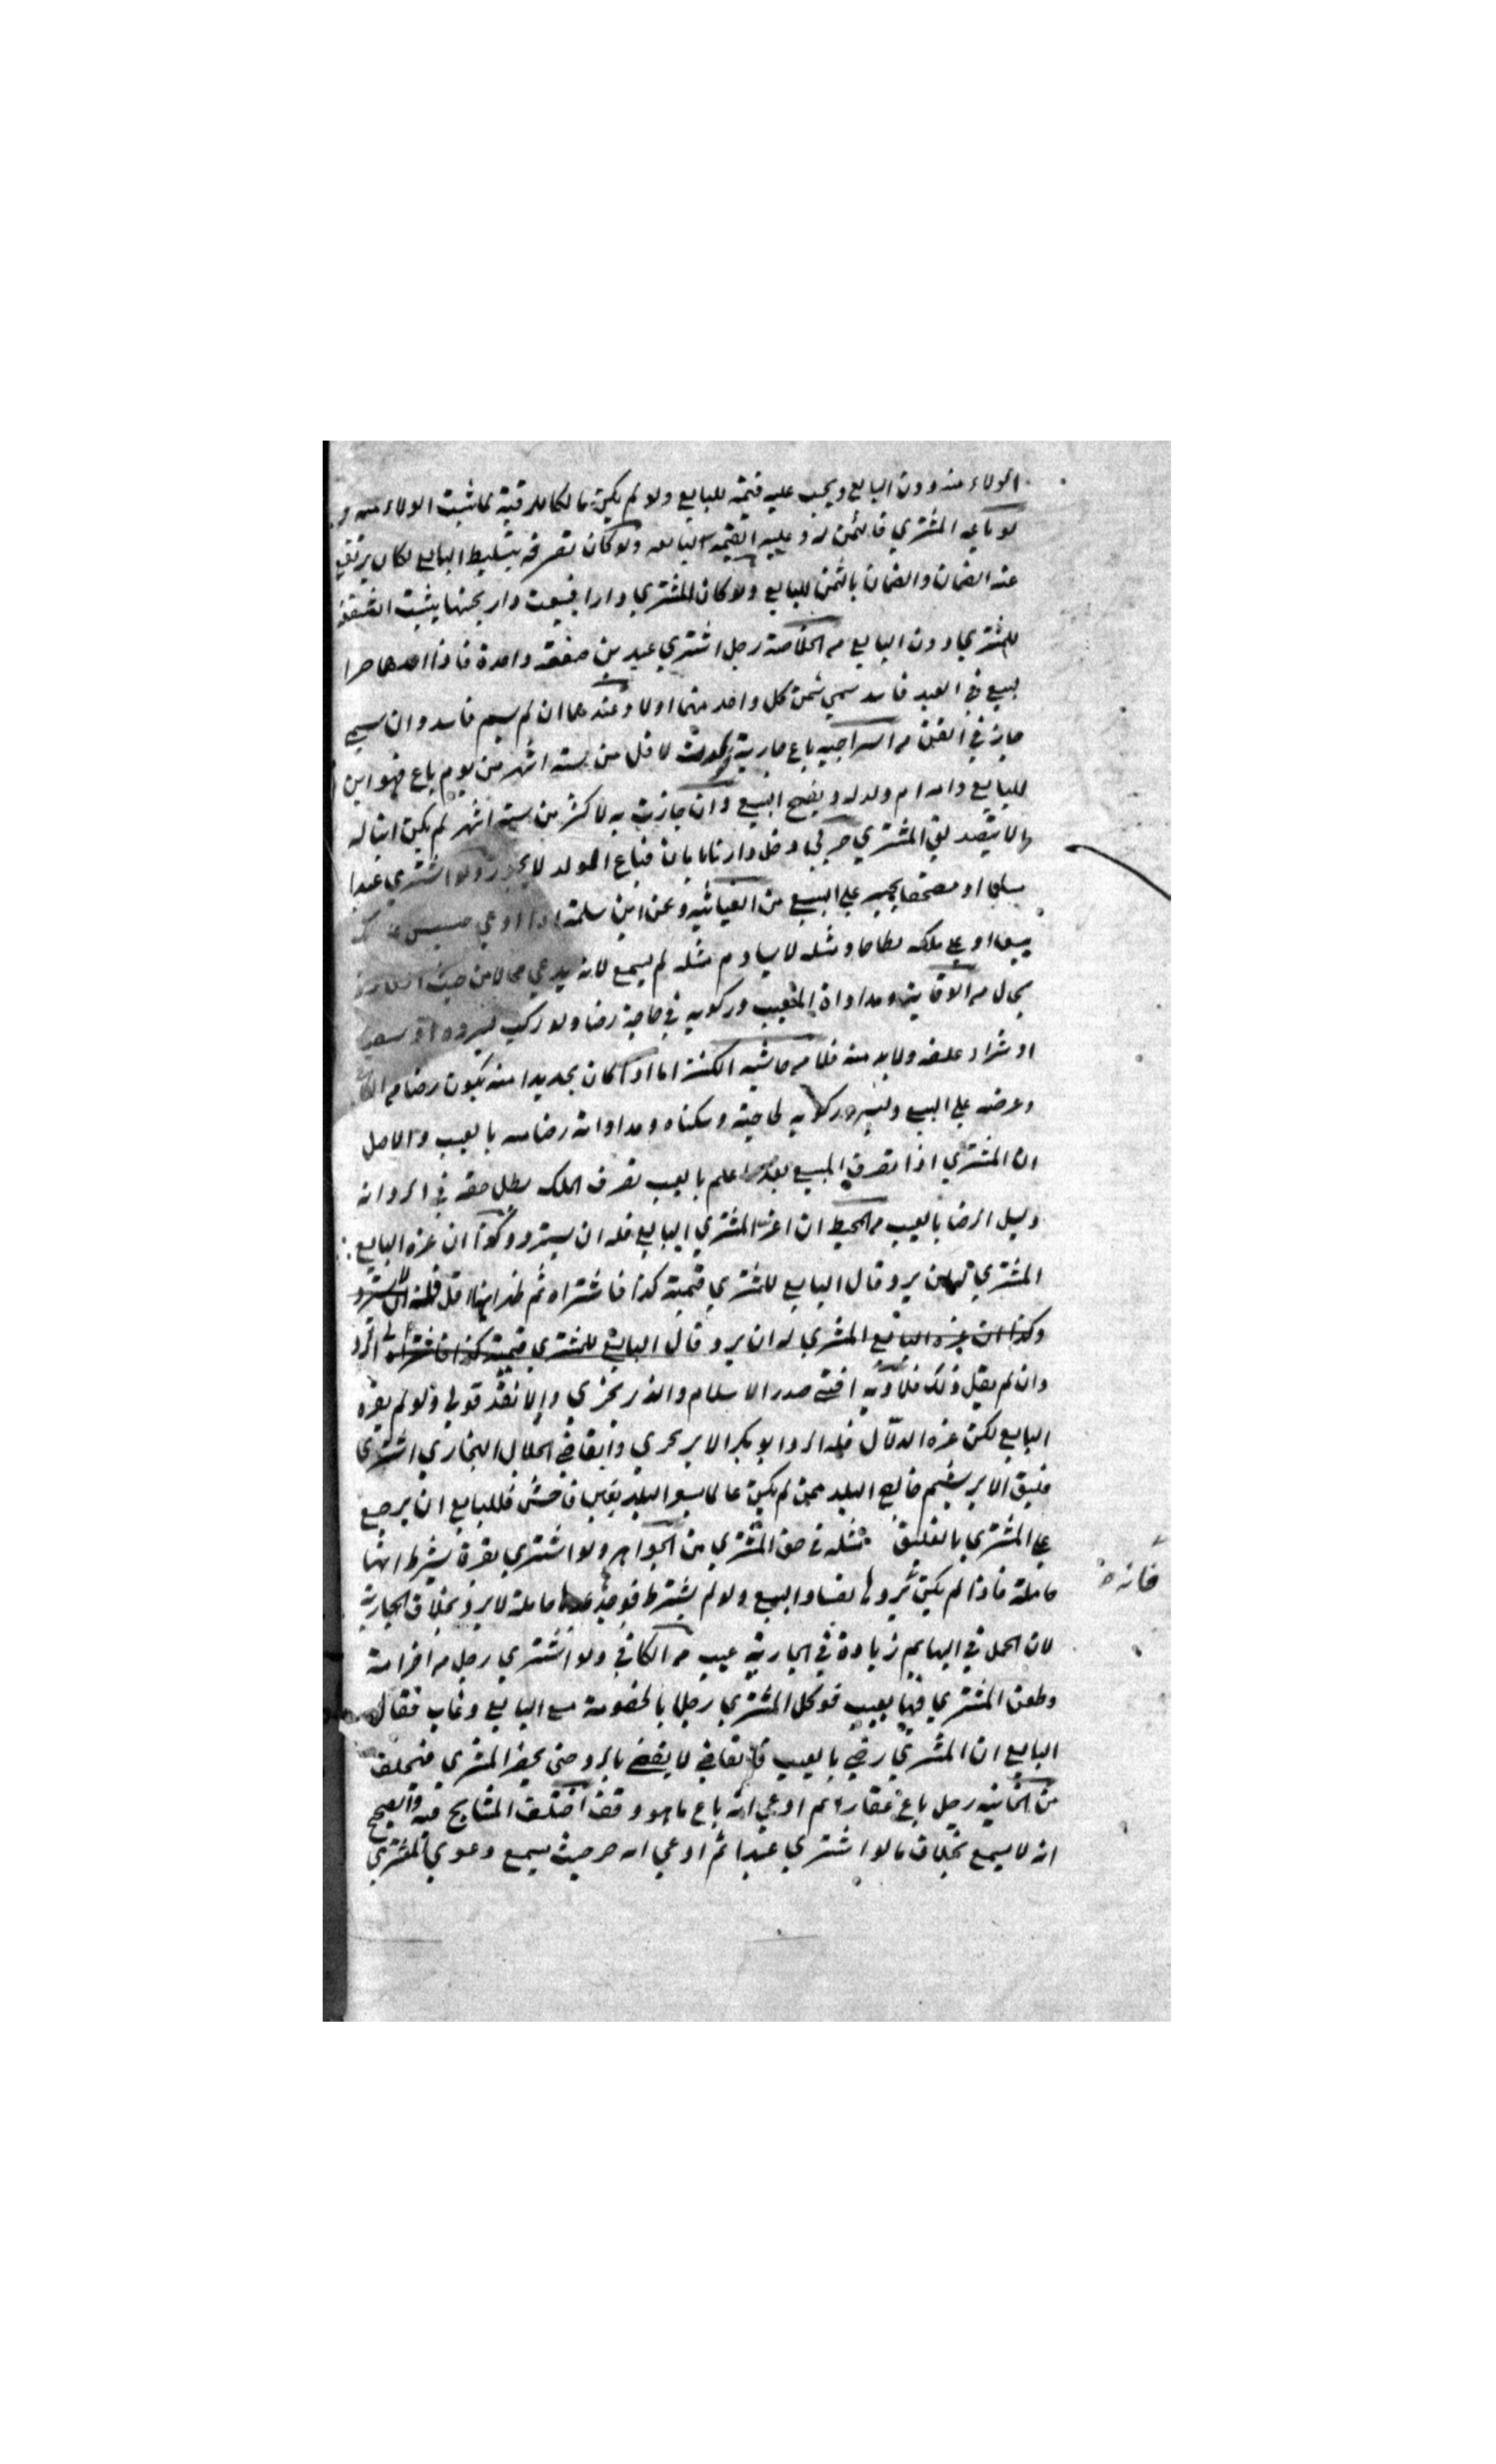 الولاء منه دون البايع ويجب عليه قيمته للبايع ولو لم يكن مالكا للرقبة لما ثبت الولاء منه و
لو باعه المشتري فالثمن له وعليه القيمة لبايعه ولو كان تصرفه بتسليط البايع لكان يرتفع
عنه الضمان والضمان بالثمن للبايع ولو كان المشتري دارا فبيعت دار بجنبها يثبت الشفعة
للمشتري دون البايع من الخلاصة رجل اشترى عبدين صفقة واحدة فاذا احدهما حرا
لبيع في العبد فاسد سمي ثمن كل واحد منهما اولا وعندهما ان لم يسم فاسد وان سمي
جاز في القن من السراجيه باع جارية لاقل من ستة اشهر من يوم باع فهو ابن
للبايع وامه ام ولد له ويفسخ البيع وان جازت به لاكثر من ستة اشهر لم يكن ابنا له
الا بتصديق المشتري حربي دخل دارنا بامان فباع الولد لا يجوز ولو اشترى عبدا
مسلما او مصحفا يجبر على البيع من الغياثيه وعن ابن سلمة اذا ادعى
بيعا او ملك ومثله لا يساوم مثله لم يسمع لانه يدعي محالا من حيث
بحال من الوقاية ومداواة المعيب وركوبه في حاجة رضا ولو ركب ليرده او سقيه
او شراء علفه ولابد منه فلا من حاشية الكنز اما اذا كان بجد بدا منه يكون رضا من
وعرضه على البيع ولبسه وركوبه لحاجته وسكناه ومداواته رضا منه بالعيب والاصل
ان المشتري اذا تصرف المبيع بعدما علم بالعيب تصرف الملاك بطل حقه في الرد انه
دليل الرضا بالعيب من المحيط ان اغر المشتري البايع فله ان يسترد وكذا ان غره البايع
المشتري له ان يرد قال البايع للمشتري قيمته كذا فاشتراه ثم ظهر انها اقل فله ان يسترد
وكذا ان غره البايع المشتري له ان يرد قال البايع للمشتري قيمته كذا فاشتراه له الرد
وان لم يقل ذلك فلا وبه افتى صدر الاسلام ولو لم يغره
البايع لكن غره الدلال فله الرد ابو بكر والقاضي الجلال البخاري اشترى
فليق الابريسم خارج البلد ممن لم يكن عالما بسعر البلد بغبن فاحش فللبايع ان يرجع
على المشتري بالفليق مثله في حق المشتري من الجواهر ولو اشترى بقرة بشرط انها
حاملة فاذا لم يكن يردها لفساد البيع ولو لم يشترط فوجدها حاملة لا يرد بخلاف الجارية
لان الحمل في البهايم زيادة في الجارية عيب من الكافي ولو اشترى رجل من اخر امة
وطعن المشتري فيها بعيب فوكل المشتري رجلا بالخصومة مع البايع وغاب فقال
البايع ان المشتري رضي بالعيب فالقاضي لا يقضي بالرد حتى يحضر المشتري فيحلف
من الخانيه رجل باع عقارا ثم ادعى انه باع ما هو وقف اختلف المشايخ فيه والصحيح
انه لا يسمع بخلاف ما لو اشترى عبدا ثم ادعى انه حر حيث يسمع دعوى المشتري